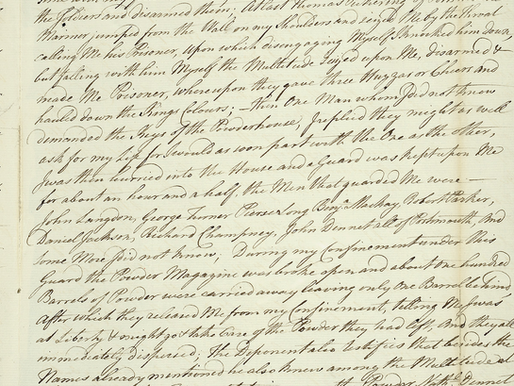 the Soldiers and disarmed them; At last Thomas Pickering of
Marriner jumped from the Wall on my Shoulders and seized Me by the throat
calling Me his Prisoner, Upon which disingaging Myself I knocked him down
but falling with him Myself the Multitude seized upon Me, disarmed &
made Me Prisoner, whereupon they gave three Huzzas or Cheers and
hauled down the Kings Colours; – then One Man whom I did not know
demanded the Keys of the Powderhouse, I replied they might as well
ask for my Life for I would as soon part with the One as the other,
I was then hurried into the House and a Guard was kept upon Me
for about an hour and a half. the Men that guarded Me were –
John Langdon, George Turner Pierse Long Benjn Mackay, Robert Parker,
Daniel Jackson, Richard Champney, John Dennet all of Portsmouth, And
some More I did not know; During my Confinement under this
Guard the Powder Magazine was broke open and about one hundred
Barrels of Powder were carried away leaving only One Barrel behind
after which they released Me from my Confinement, telling Me I was
at Liberty & might go & take Care of the Powder they had left, And they all
immediately dispersed; The Deponent also testifies that besides the
Names already mentioned he also knew among the Multitude
Powder Dennet